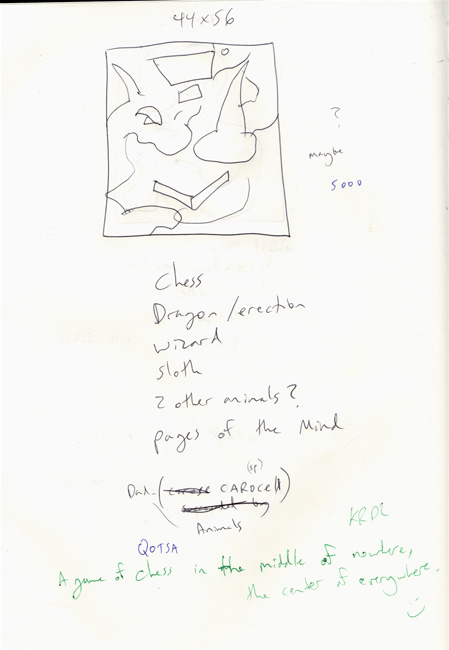 44x56
?
maybe
5000
Chess
Dragon/erection
wizard
sloth
2 other animals?
pages of the Mind
(sp)
Dad-( CAROCell)
Animals
KRDL
QOTSA
A game of chess in the middle of nowhere,
the center of everywhere.